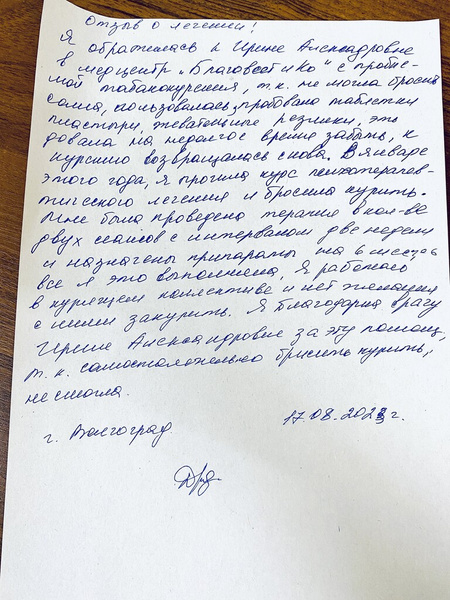 Отзыв о лечении!
Я обратилась к Ирине Александровне
в медцентр „Благовест и Ко" с пробле-
мой табакокурения, т.к. не могла бросить
сама, пользовалась, пробовала таблетки
пластыри, жевательные резинки, это
давала на недолгое время забыть, к
курению возвращалась снова. В январе
этого года, я прошла курс психотерапев-
тического лечения и бросила курить.
Мне была проведена терапия в кол-ве
двух сеансов с интервалом две недели
и назначены препараты на 6 месяцев
все я это выполнила. Я работаю
в курящем коллективе и нет желания
с ними закурить. Я благодарна врачу
Ирине Александровне за эту помощь,
т.к. самостоятельно бросить курить,
не смогла.
г. Волгоград. 17.08.2023г.